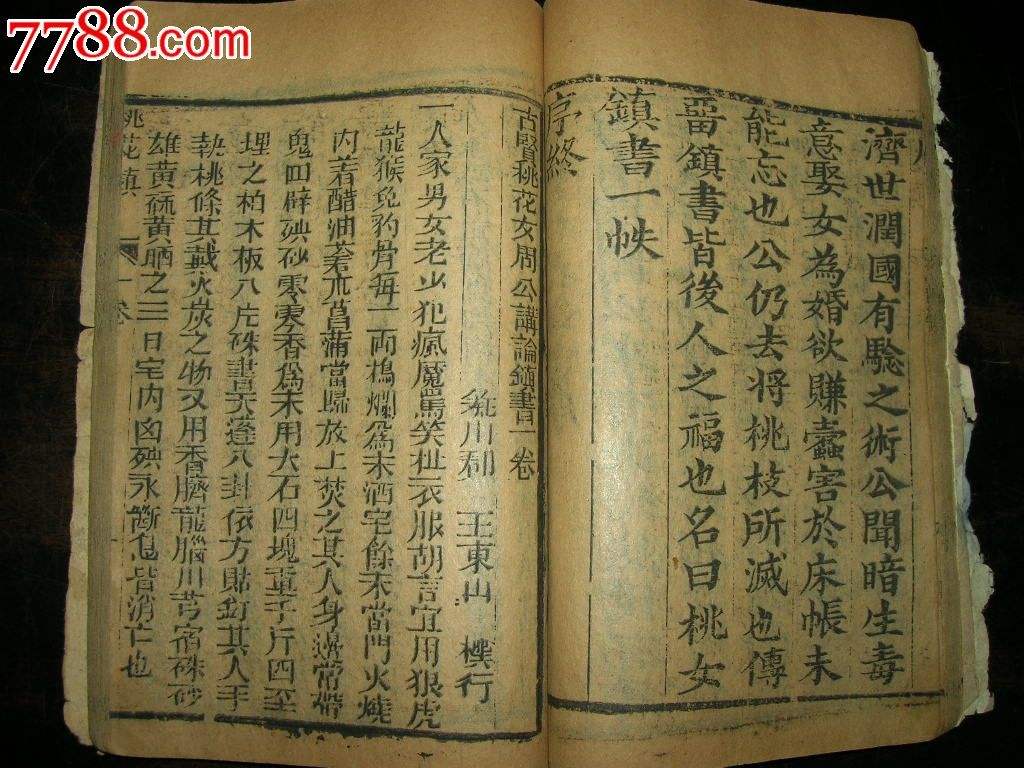 7788.com
濟世潤國有驗之術公聞暗生毒
意娶女為婚欲賺蠹害於床帳未
能忘也公仍去將桃枝所滅也傳
畱鎮書皆後人之福也名曰桃女
鎮書一帙
序終
古賢桃花女周公講論鎮書一卷
川郡 王東山 行
一人家男女老少犯瘋魔罵笑扯衣服胡言宜用狼虎
龍猴兔豹骨每一兩搗爛為末洒宅餘末當門火燒
內着醋油蒼朮菖蒲當歸放上焚之其人身邊常帶
鬼田辟殃砂零零香為末用大石四塊重千斤四至
埋之柏木板八片硃書天蓬八卦依方貼釘其人手
執桃條耳戴火炭之物又用香臍龍腦川芎宿硃砂
雄黃硫黃晒之三日宅內凶殃永斷息皆消亡也
桃花鎮 一卷